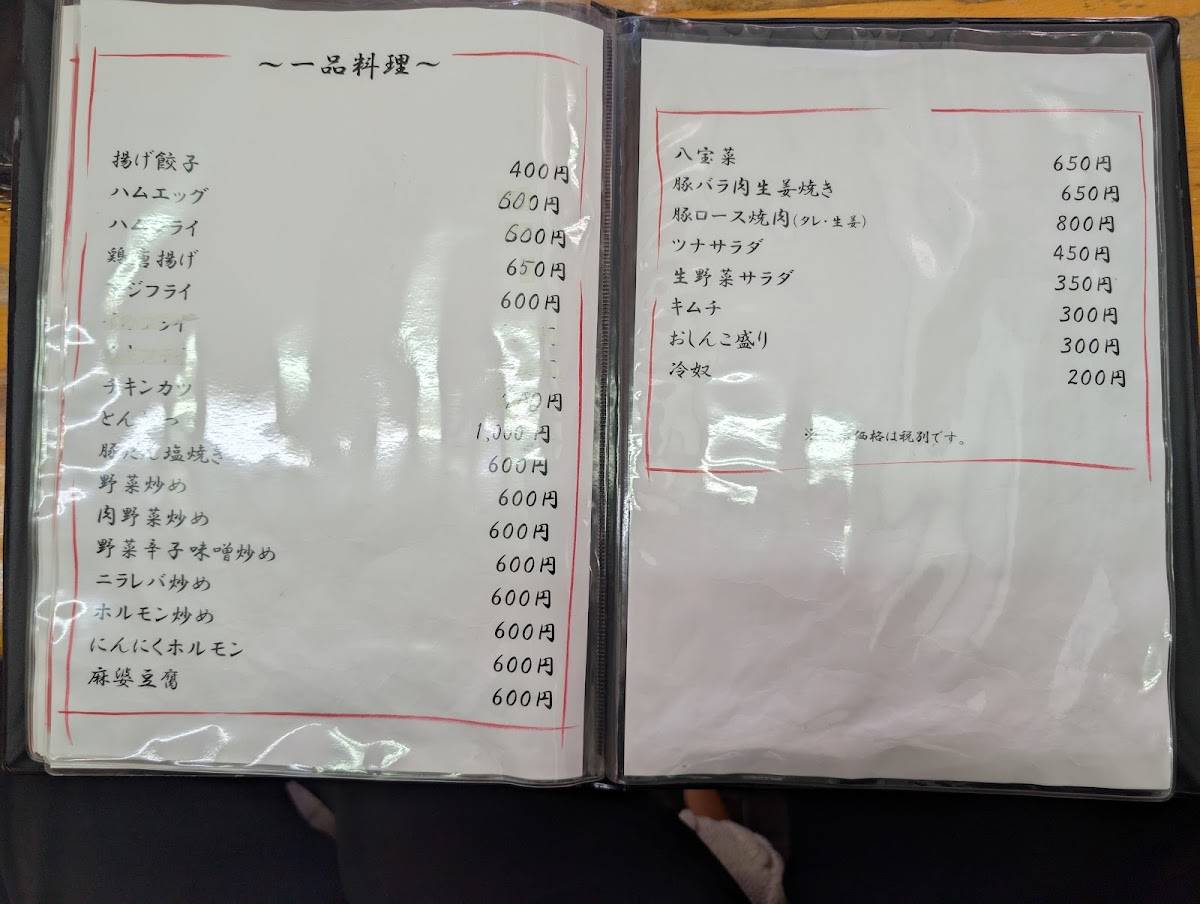 ～一品料理～
揚げ餃子 400円
ハムエッグ 600円
ハムフライ 600円
鶏唐揚げ 650円
アジフライ 600円
チキンカツ
とんかつ 1,000円
豚たん塩焼き 600円
野菜炒め 600円
肉野菜炒め 600円
野菜辛子味噌炒め 600円
ニラレバ炒め 600円
ホルモン炒め 600円
にんにくホルモン 600円
麻婆豆腐 600円
八宝菜 650円
豚バラ肉生姜焼き 650円
豚ロース焼肉(タレ・生姜) 800円
ツナサラダ 450円
生野菜サラダ 350円
キムチ 300円
おしんこ盛り 300円
冷奴 200円
※ 価格は税別です。